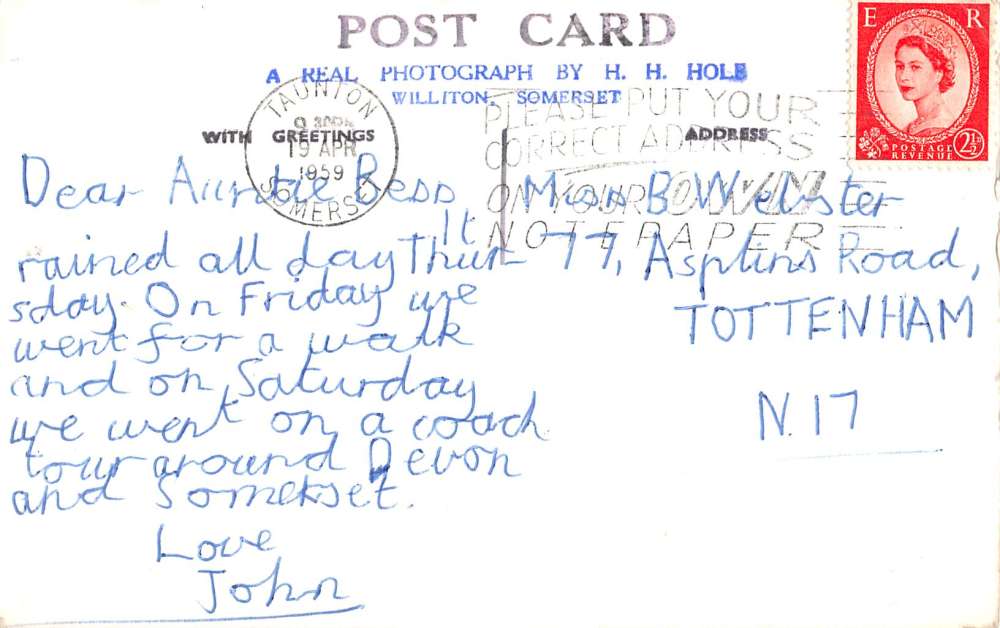 POST CARD
A REAL PHOTOGRAPH BY H. H. HOLE
WILLITON, SOMERSET
WITH GREETINGS
ADDRESS
E R
POSTAGE
REVENUE
2½
TAUNTON
19 APR
1959
SOMERSET
PLEASE PUT YOUR
CORRECT ADDRESS
ON YOUR OWN
NOTEPAPER
Dear Auntie Bess,
It
rained all day Thur-
sday. On Friday we
went for a walk
and on Saturday
we went on a coach
tour around Devon
and Somerset.
Love
John
Miss B. Webster
77, Asplins Road,
TOTTENHAM
N. 17